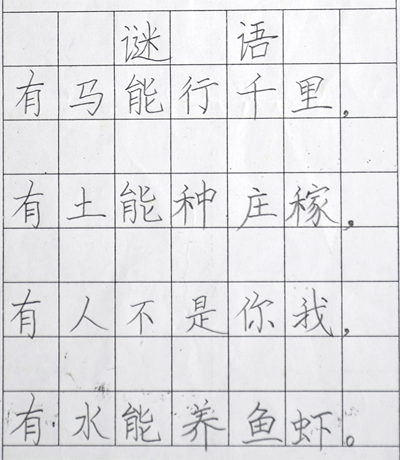 谜语
有马能行千里，
有土能种庄稼。
有人不是你我，
有水能养鱼虾。